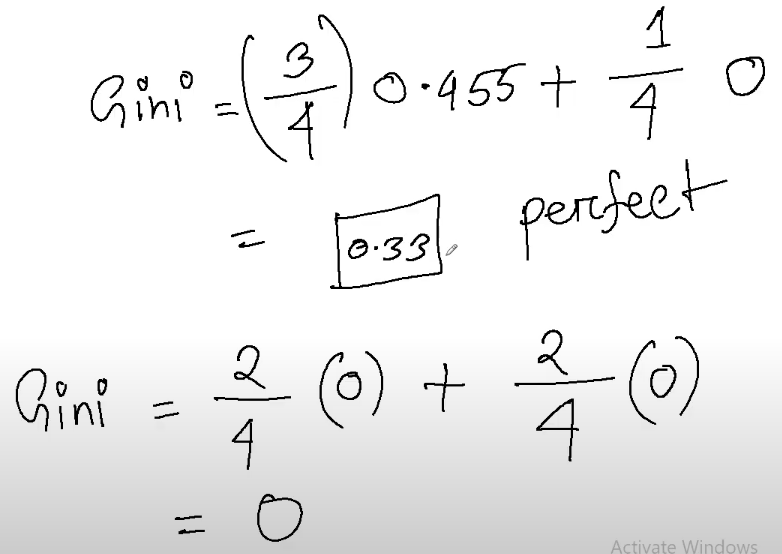 Gini = (3/4) 0.455 + 1/4 0
= 0.33 perfect
Gini = 2/4 (0) + 2/4 (0)
= 0
Activate Windows